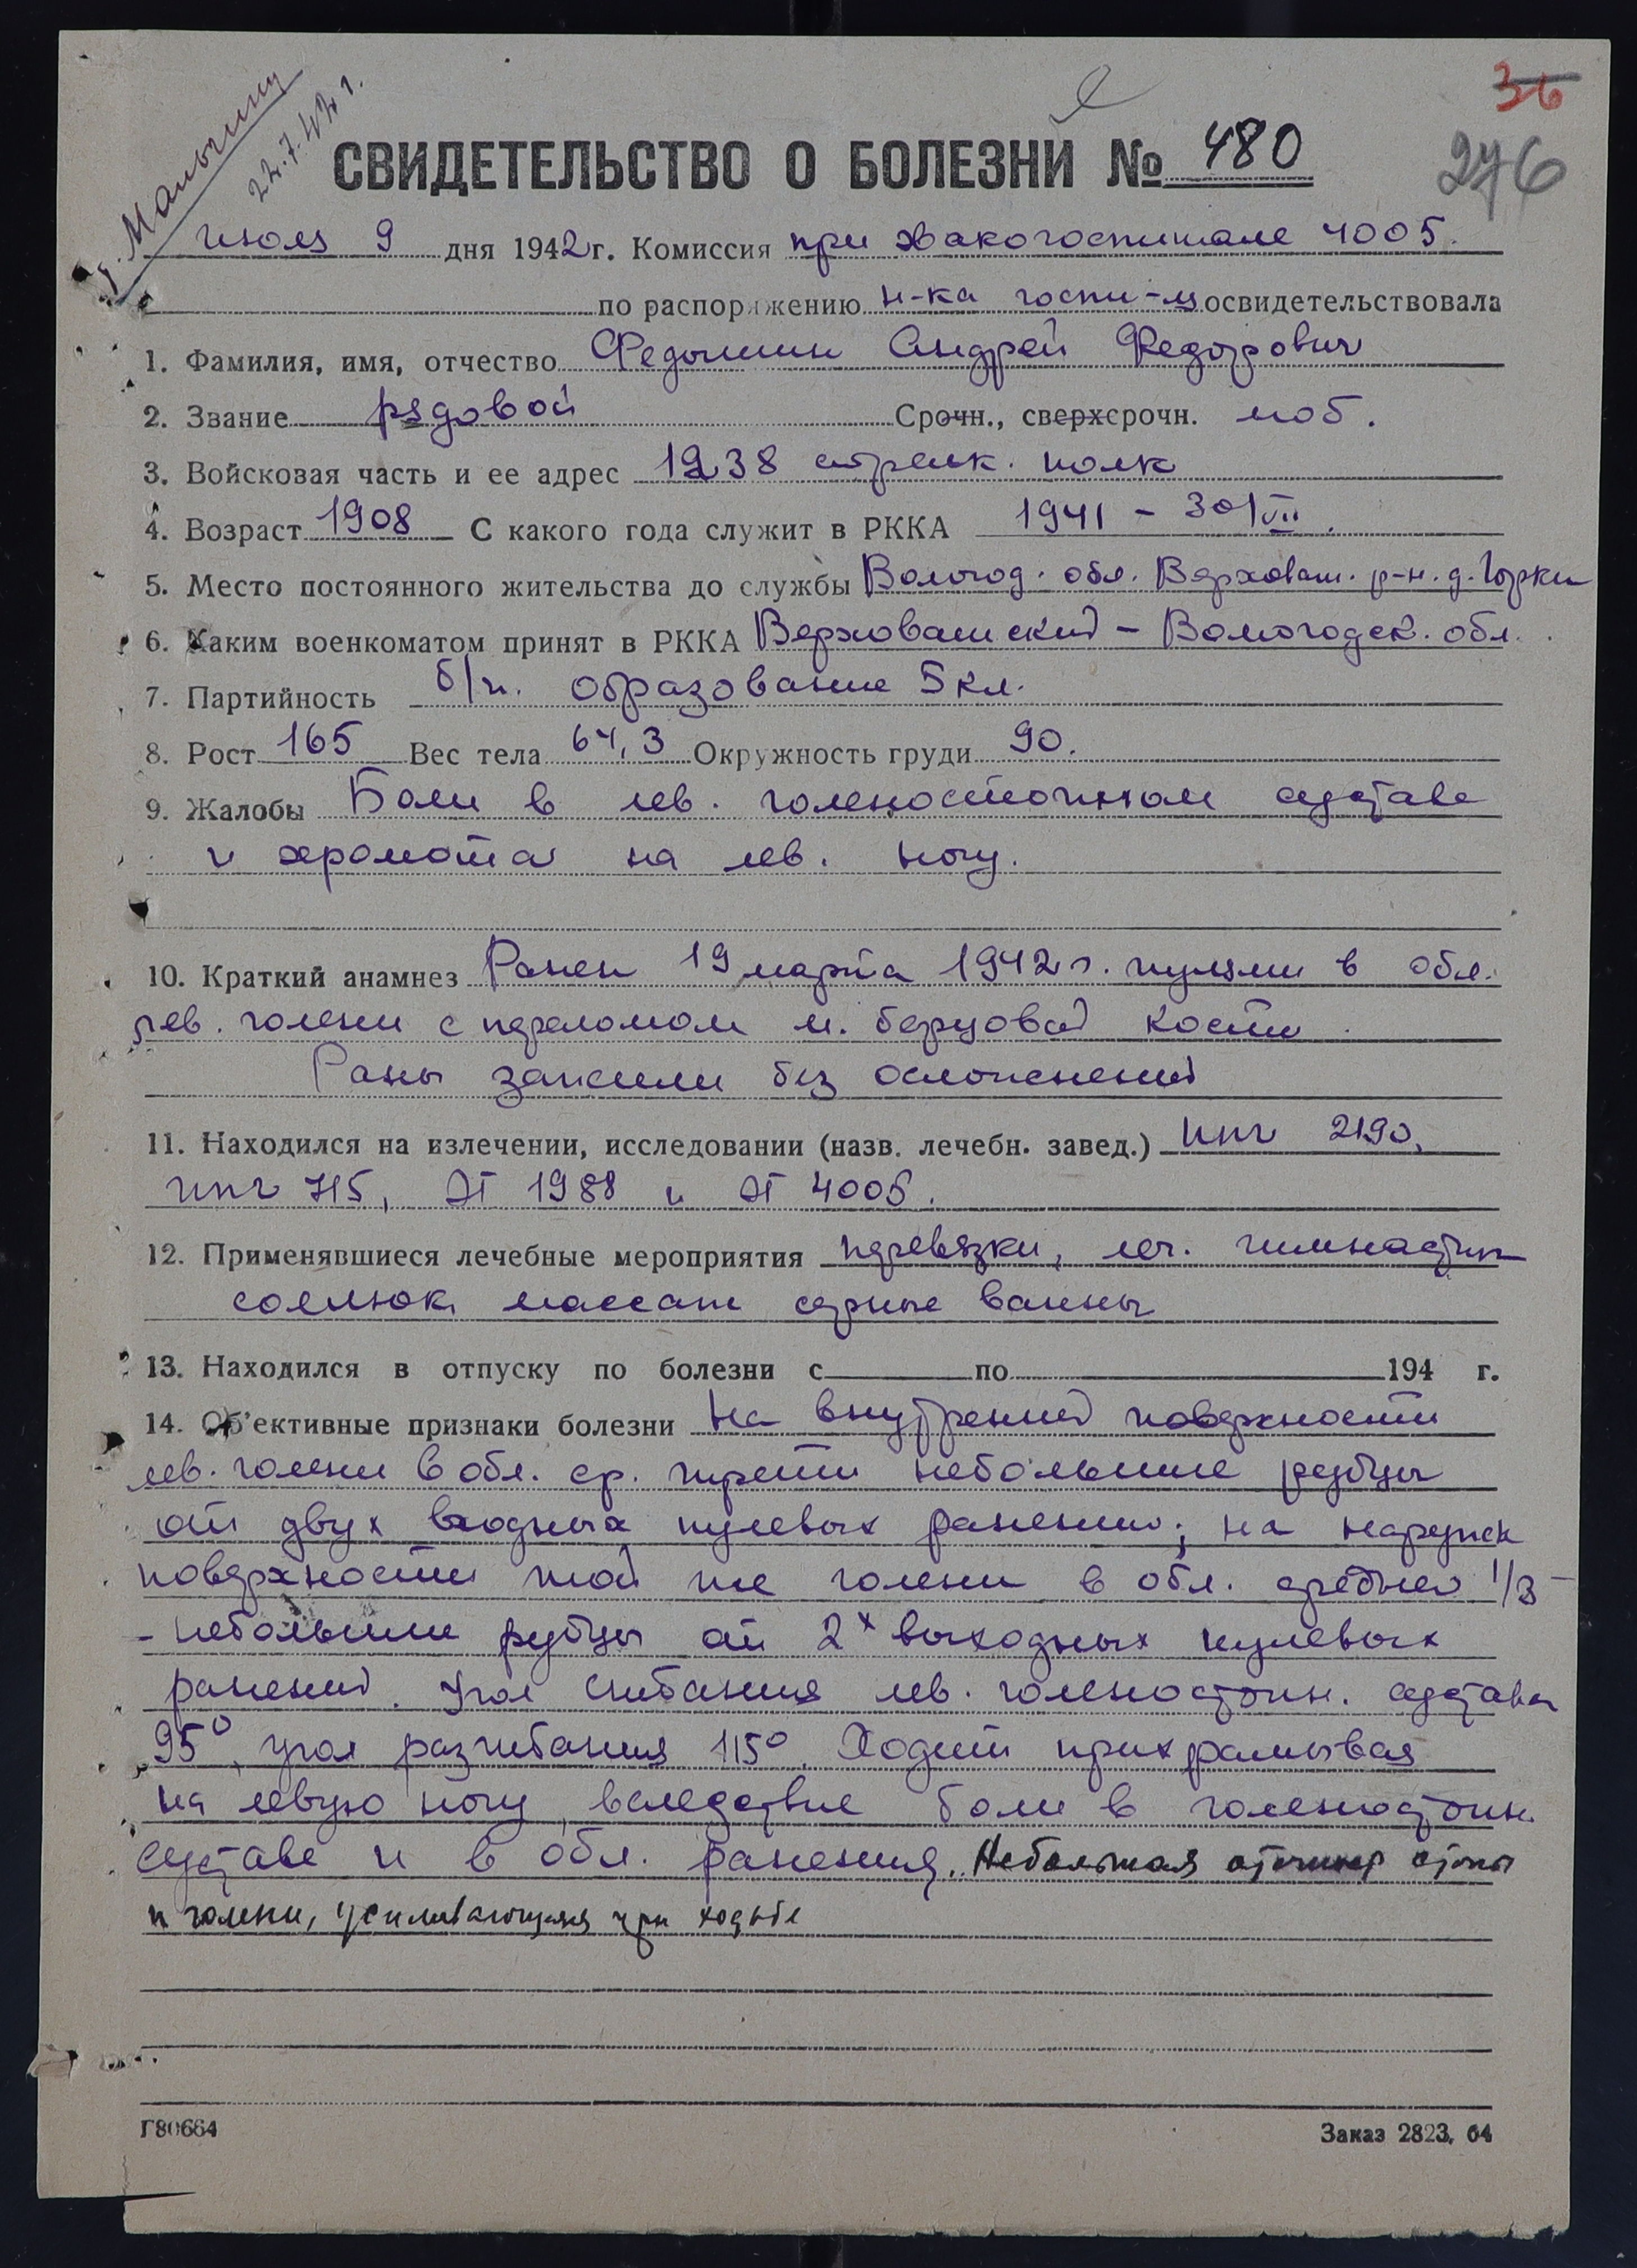 36
276
т. Малыгину
22.7.42 г.
СВИДЕТЕЛЬСТВО О БОЛЕЗНИ № 480
июля 9 дня 1942 г. Комиссия при эвакогоспитале 4005.
по распоряжению н-ка госпи-ля освидетельствовала
1. Фамилия, имя, отчество Федышин Андрей Федорович
2. Звание рядовой Срочн., сверхсрочн. моб.
3. Войсковая часть и ее адрес 1238 стрелк. полк
4. Возраст 1908 С какого года служит в РККА 1941 – 30/VII.
5. Место постоянного жительства до службы Вологод. обл. Верховаж. р-н. д. Горки
6. Каким военкоматом принят в РККА Верховажский – Вологодск. обл.
7. Партийность б/п. образование 5 кл.
8. Рост 165 Вес тела 64,3 Окружность груди 90.
9. Жалобы Боли в лев. голеностопном суставе
и хромота на лев. ногу.
10. Краткий анамнез Ранен 19 марта 1942 г. пулями в обл.
лев. голени с переломом м. берцовой кости.
Раны зажили без осложнений
11. Находился на излечении, исследовании (назв. лечебн. завед.) ппг 2190,
ппг 715, ЭГ 1988 и ЭГ 4005.
12. Применявшиеся лечебные мероприятия перевязки, леч. гимнастик
соллюкс массаж серные ванны
13. Находился в отпуску по болезни с по 194 г.
14. Об'ективные признаки болезни На внутренней поверхности
лев. голени в обл. ср. трети небольшие рубцы
от двух входных пулевых ранений; на наружн
поверхности той же голени в обл. средней 1/3 –
– небольшие рубцы от 2х выходных пулевых
ранений. Угол сгибания лев. голеностопн. сустава
95°, угол разгибания 115°. Ходит прихрамывая
на левую ногу вследствие боли в голеностопн.
суставе и в обл. ранения. Небольшая стопы
и голени, усиливающаяся при ходьбе
Г80664
Заказ 2823, 64